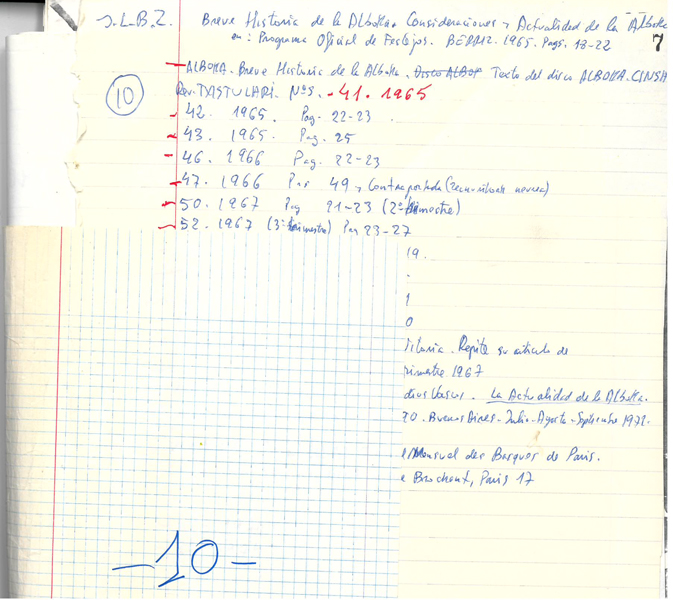 J.L.B.Z. Breve Historia de la Alboka. Consideraciones y Actualidad de la Alboka
en: Programa Oficial de Festejos. BERRIZ. 1965. Pags. 18-22
7
ALBOKA. Breve Historia de la Alboka. Disco ALBOK Texto del disco ALBOKA. CINSA
10
Rev. TXISTULARI. Nos. - 41. 1965
42. 1965. Pag. 22-23.
43. 1965. Pag. 25
46. 1966 Pag. 22-23
47. 1966 Pag 49 y Contraportada
50. 1967 Pag 21-23 (2º trimestre)
52. 1967 (3º trimestre) Pag 23-27
19.
1
0
Vitoria. Repite su articulo de
rimestre 1967
dios Vascos. La Actualidad de la Alboka.
70. Buenos Aires. Julio-Agosto-Septiembre 1971.
Mensuel des Basques de Paris.
e Brochant, Paris 17
-10-